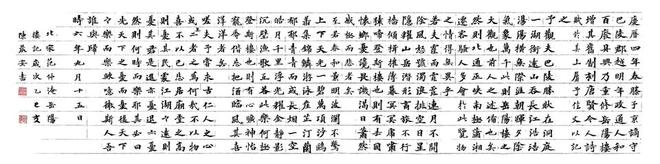 慶曆四年春滕子京謫守
巴陵郡越明年政通人和
百廢具興乃重修岳陽樓
增其舊制刻唐賢今人詩
賦於其上屬予作文以記
之
予觀夫巴陵勝狀在洞庭
一湖銜遠山吞長江浩浩
湯湯橫無際涯朝暉夕陰
氣象萬千此則岳陽樓之
大觀也前人之述備矣
然則北通巫峽南極瀟湘
遷客騷人多會於此覽物
之情得無異乎
若夫霪雨霏霏連月不開
陰風怒號濁浪排空日星
隱耀山岳潛形商旅不行
檣傾楫摧薄暮冥冥虎嘯
猿啼登斯樓也則有去國
懷鄉憂讒畏譏滿目蕭然
感極而悲者矣
至若春和景明波瀾不驚
上下天光一碧萬頃沙鷗
翔集錦鱗游泳岸芷汀蘭
郁郁青青而或長煙一空
皓月千里浮光躍金靜影
沉璧漁歌互答此樂何極
登斯樓也則有心曠神怡
寵辱偕忘把酒臨風其喜
洋洋者矣
嗟夫予嘗求古仁人之心
或異二者之為何哉不以物
喜不以己悲居廟堂之高
則憂其民處江湖之遠則
憂其君是進亦憂退亦憂
然則何時而樂耶其必曰
先天下之憂而憂後天下
之樂而樂歟噫微斯人吾
誰與歸
時六年九月十五日
北宋范仲淹岳陽
樓記歲次乙亥